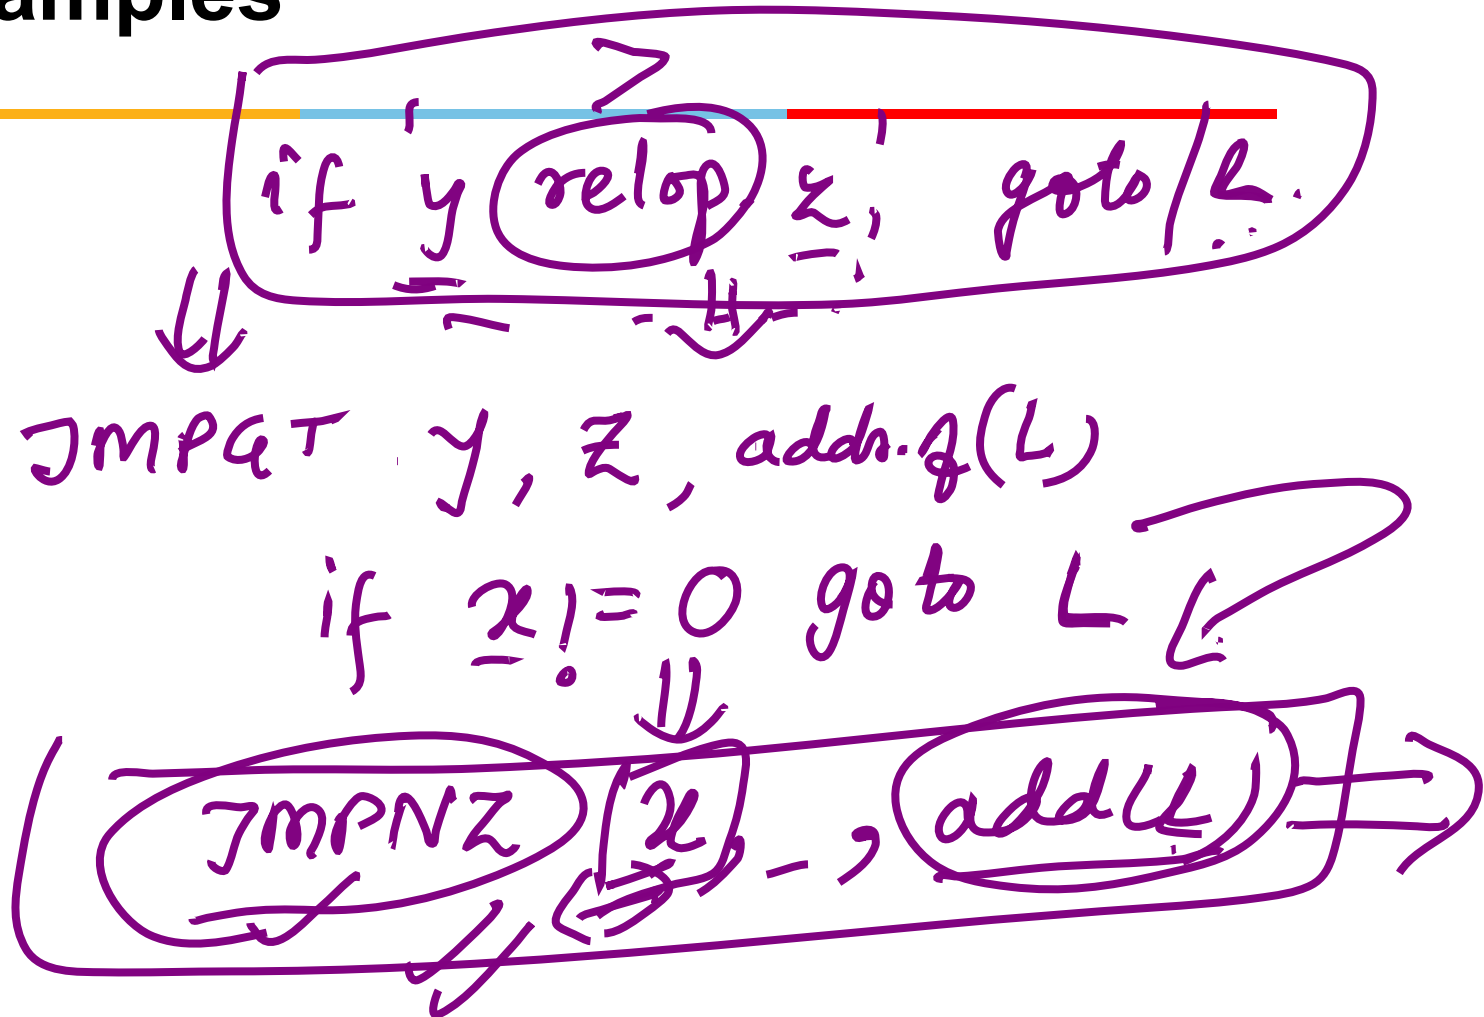 amples
>
if y relop z, goto L.
JMPGT y, z, addr.of(L)
if x != 0 goto L
JMPNZ x, _, add(L)